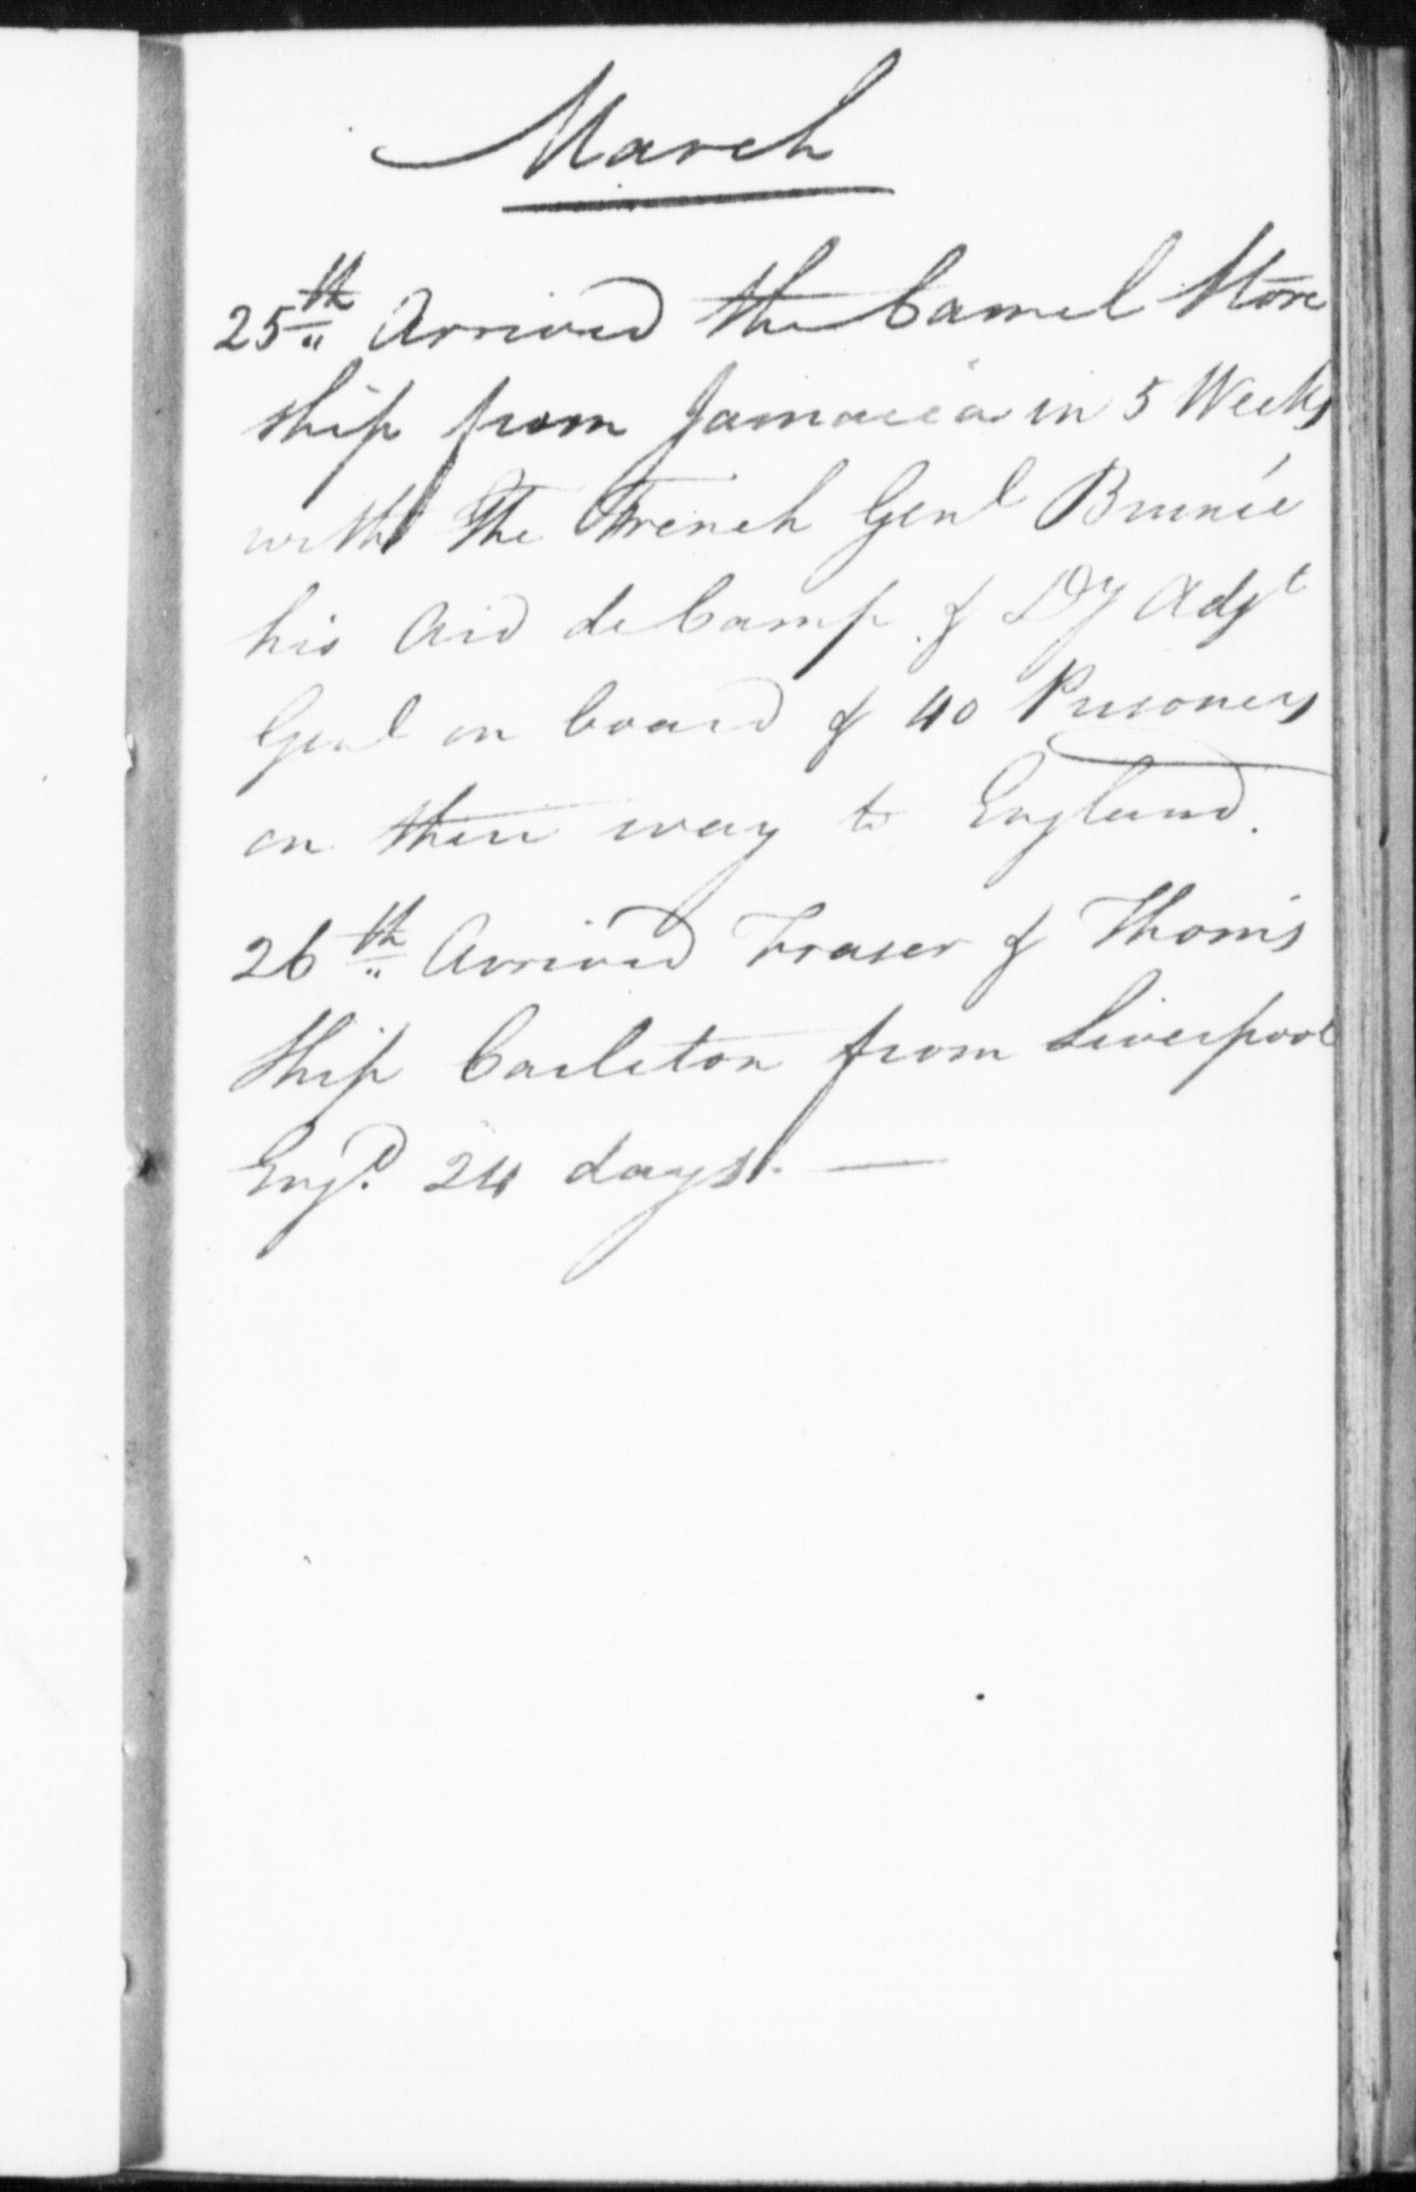 March
25th Arrived the Camel Store
ship from Jamaica in 5 Weeks
with The French Genl Brunée
his Aid de Camp & Dy Adjt
Genl on board & 40 Prisoners
on their way to England.
26th Arrived Fraser & Thom's
Ship Carleton from Liverpool
Engd. 24 days. —